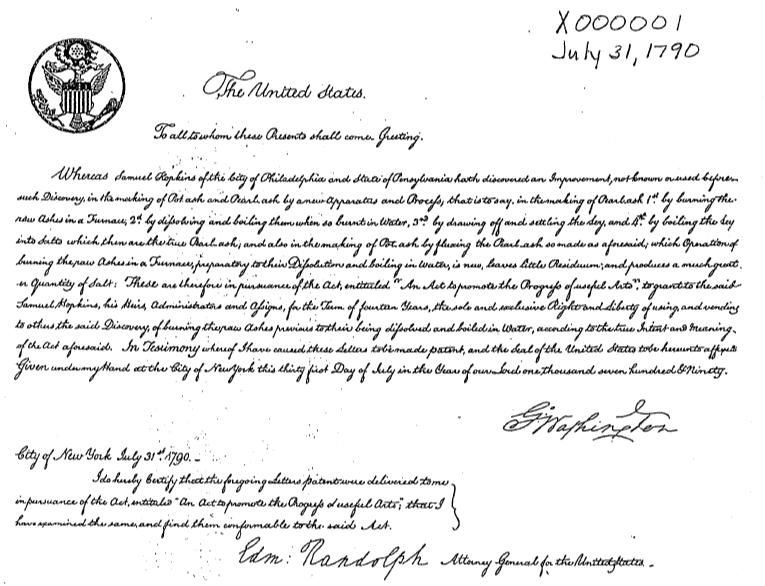 X000001
July 31, 1790
The United States.
To all to whom these Presents shall come Greeting.
Whereas Samuel Hopkins of the City of Philadelphia and State of Pensylvania hath discovered an Improvement, not known or used before
such Discovery, in the making of Pot ash and Pearl ash by a new Apparatus and Process; that is to say, in the making of Pearl ash 1st. by burning the
raw Ashes in a Furnace, 2d. by dissolving and boiling them when so burnt in Water, 3rd. by drawing off and settling the Ley, and 4th. by boiling the Ley
into Salts which then are the true Pearl ash; and also in the making of Pot ash by fluxing the Pearl ash so made as aforesaid; which Operation of
burning the raw Ashes in a Furnace, preparatory to their Dissolution and boiling in Water, is new, leaves little Residuum; and produces a much great-
er Quantity of Salt: These are therefore in pursuance of the Act, entituled "An Act to promote the Progress of useful Arts", to grant to the said
Samuel Hopkins, his Heirs, Administrators and Assigns, for the Term of fourteen Years, the sole and exclusive Right and Liberty of using, and vending
to others the said Discovery, of burning the raw Ashes previous to their being dissolved and boiled in Water, according to the true Intent and Meaning
of the Act aforesaid. In Testimony whereof I have caused these Letters to be made patent, and the Seal of the United States to be hereunto affixed
Given under my Hand at the City of New York this thirty first Day of July in the Year of our Lord one thousand seven hundred & Ninety.
G. Washington
City of New York July 31st. 1790. –
I do hereby Certify that the foregoing Letters patent were delivered to me
in pursuance of the Act, entituled "An Act to promote the Progress of useful Arts"; that I
have examined the same, and find them conformable to the said Act.
Edm: Randolph Attorney General for the United States. –